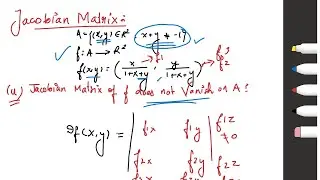 Jacobian Matrix:-
A = {(x,y) ∈ R² x+y ≠ -1}
f: A → R² f1
f(x,y) = (x/1+x+y, y/1+x+y) f2
(ii) Jacobian Matrix of f does not Vanish on A?
Jf(x,y) = | f1x f1y f1z
≠0
f2x f2y f2z